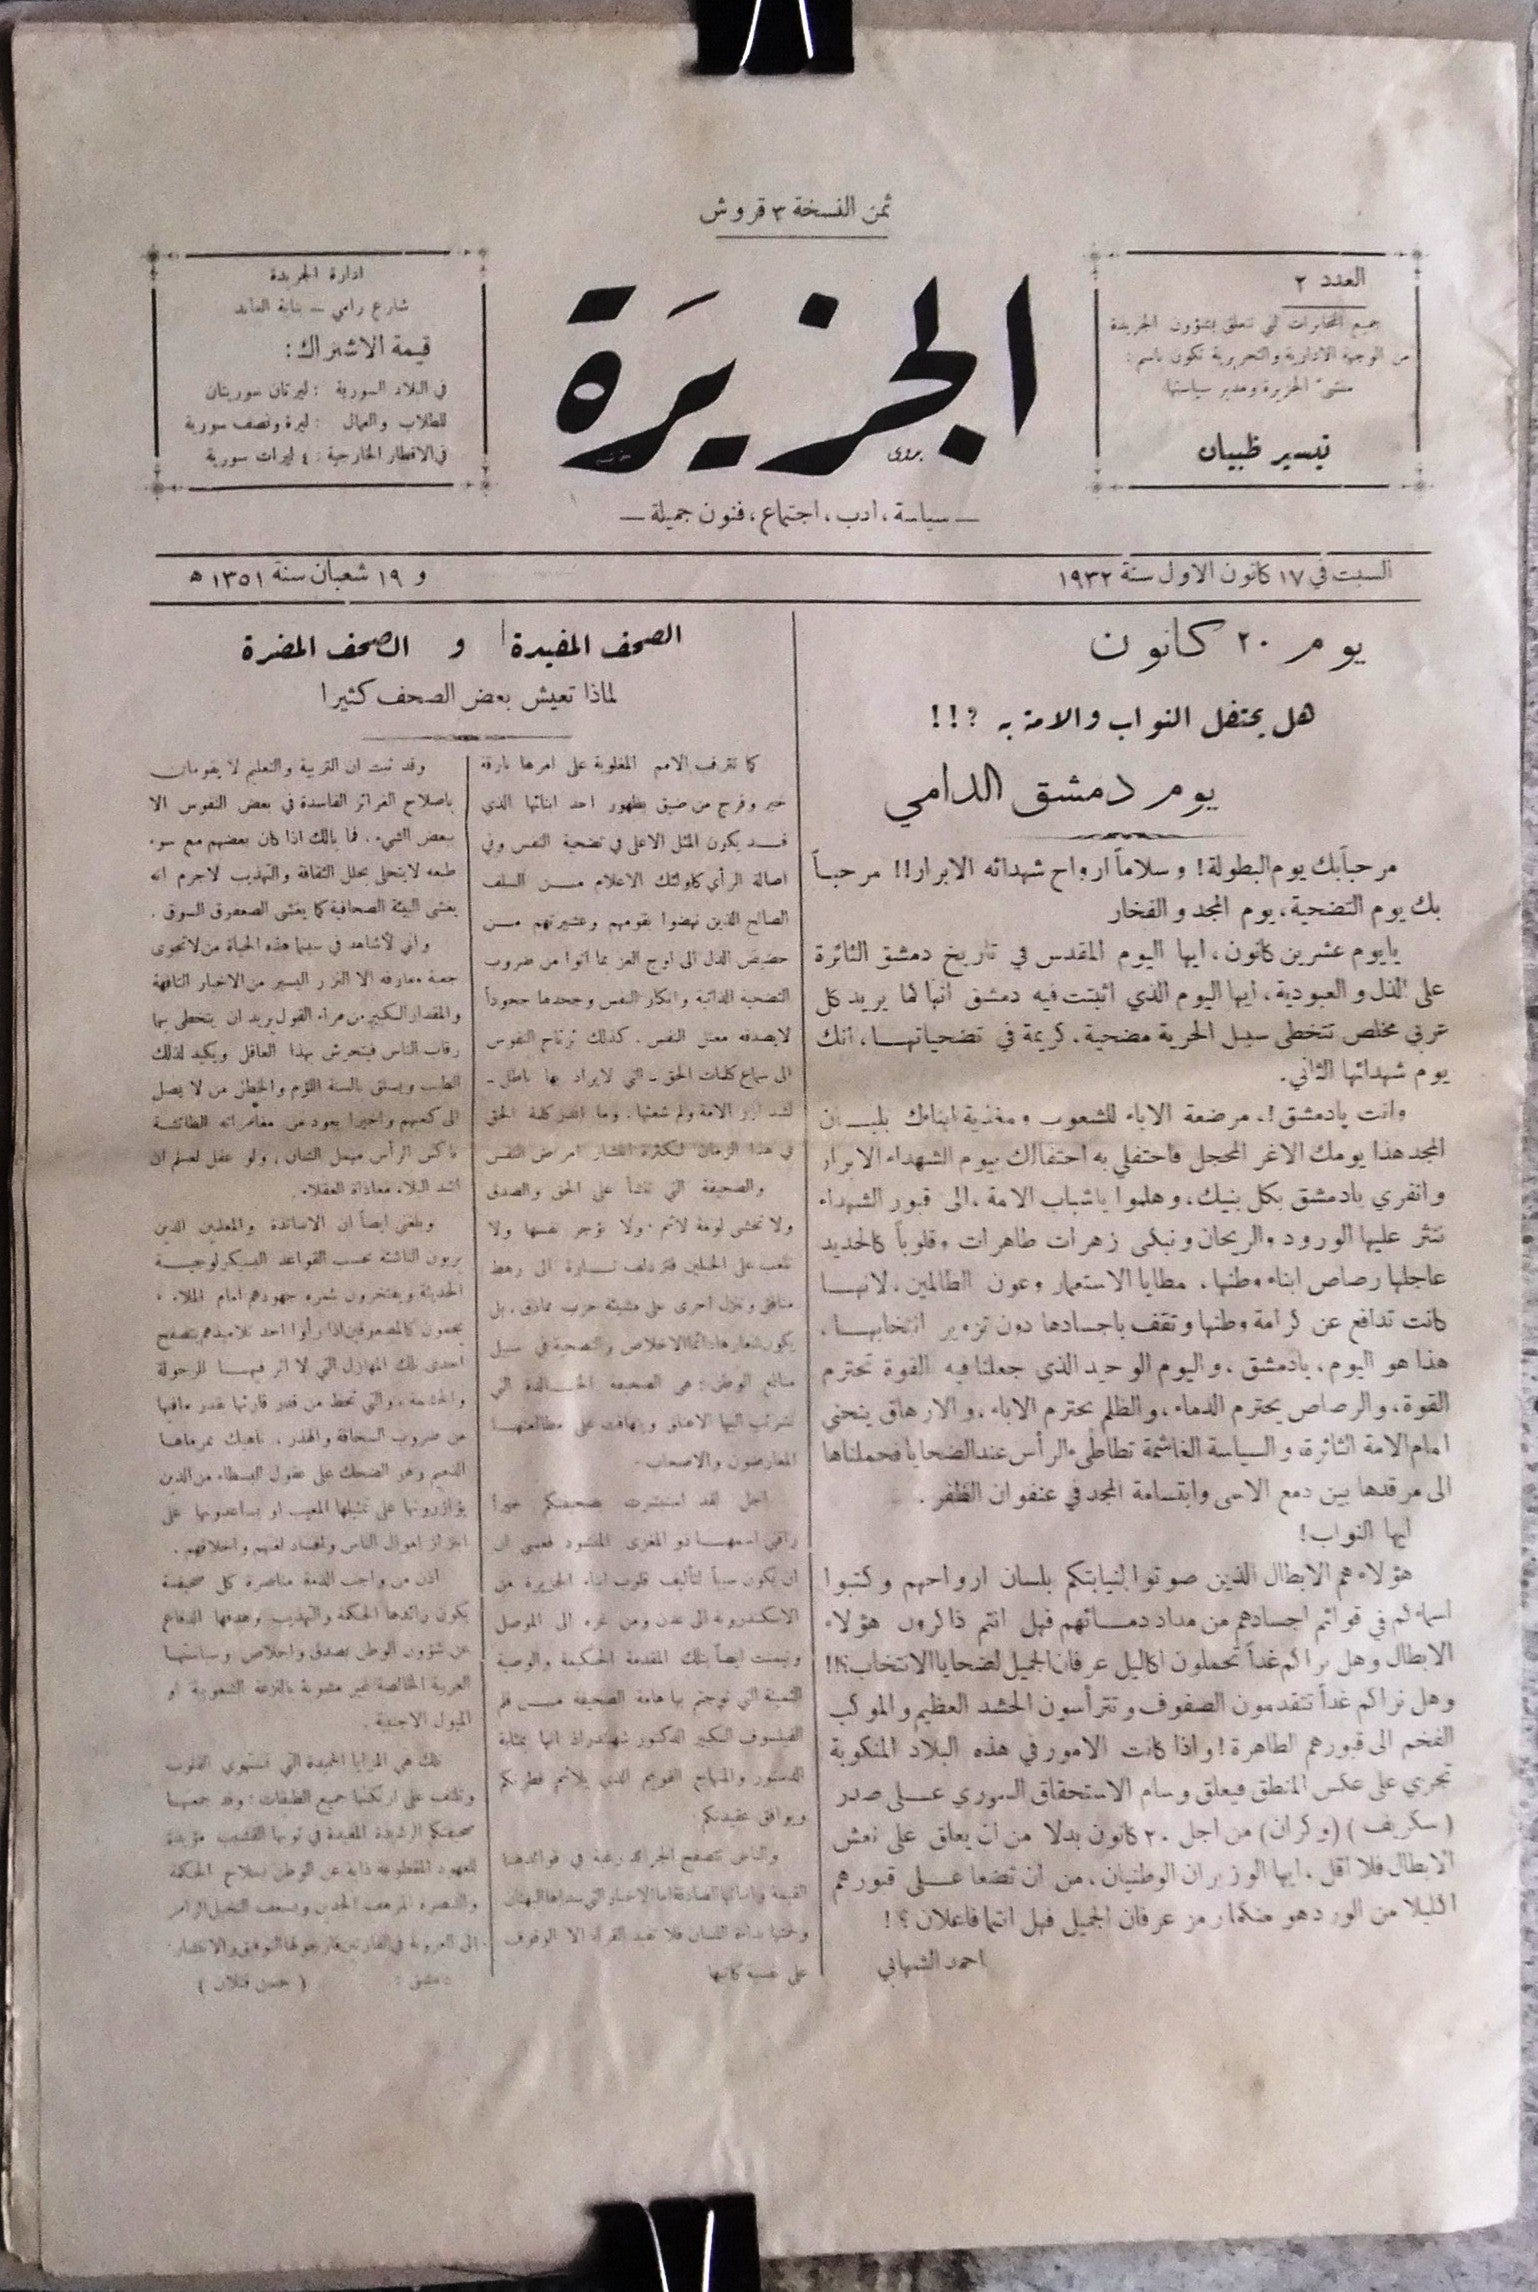 ثمن النسخة ٣ قروش
العدد ٢
جميع المخابرات التي تتعلق بشؤون الجريدة
من الوجهة الادارية والتحريرية تكون باسم:
منشئ الجزيرة ومدير سياستها
تيسير ظبيان
الجزيرة
ـ سياسة، ادب، اجتماع، فنون جميلة ـ
ادارة الجريدة
شارع رامي ـ بناية العابد
قيمة الاشتراك:
في البلاد السورية : ليرتان سوريتان
للطلاب والعمال : ليرة ونصف سورية
في الاقطار الخارجية : ٤ ليرات سورية
السبت في ١٧ كانون الاول سنة ١٩٣٢
و ١٩ شعبان سنة ١٣٥١ ه
يوم ٢٠ كانون
هل يحتفل النواب والامة به ؟!!
يوم دمشق الدامي
مرحباً بك يوم البطولة! وسلاماً ارواح شهدائه الابرار!! مرحباً
بك يوم التضحية، يوم المجد والفخار
يايوم عشرين كانون، ايها اليوم المقدس في تاريخ دمشق الثائرة
على الذل والعبودية، ايها اليوم الذي اثبتت فيه دمشق انها لما يريد كل
عربي مخلص تتخطى سبيل الحرية مضحية، كريمة في تضحياتها، انك
يوم شهدائها الثاني.
وانت يادمشق!، مرضعة الاباء للشعوب ومغذية ابناءك بلبان
المجد هذا يومك الاغر المحجل فاحتفلي به احتفالك بيوم الشهداء الابرار
وانفري يادمشق بكل بنيك، وهلموا ياشباب الامة، الى قبور الشهداء
ننثر عليها الورود والريحان ونبكي زهرات طاهرات وقلوباً كالحديد
عاجلها رصاص ابناء وطنها، مطايا الاستعمار وعون الظالمين، لانها
كانت تدافع عن كرامة وطنها وتقف باجسادها دون تزوير انتخابها،
هذا هو اليوم، يادمشق، واليوم الوحيد الذي جعلنا فيه القوة تحترم
القوة، والرصاص يحترم الدماء، والظلم يحترم الاباء، والارهاق ينحني
امام الامة الثائرة، والسياسة الغاشمة تطاطىء الرأس عند الضحايا فحملناها
الى مرقدها بين دمع الاسى وابتسامة المجد في عنفوان الظفر.
ايها النواب!
هؤلاء هم الابطال الذين صوتوا لنيابتكم بلسان ارواحهم وكتبوا
اسماءكم في قوائم اجسادهم من مداد دمائهم فهل انتم ذاكرون هؤلاء
الابطال وهل نراكم غداً تحملون اكاليل عرفان الجميل لضحايا الانتخاب؟!!
وهل نراكم غداً تتقدمون الصفوف وتترأسون الحشد العظيم والموكب
الفخم الى قبورهم الطاهرة! واذا كانت الامور في هذه البلاد المنكوبة
تجري على عكس المنطق فيعلق وسام الاستحقاق السوري على صدر
(سكريف) (وكران) من اجل ٢٠ كانون بدلا من ان يعلق على نعش
الابطال فلا اقل، ايها الوزيران الوطنيان، من ان تضعا على قبورهم
اكليلا من الورد هو منكما رمز عرفان الجميل فهل انتما فاعلان؟!
احمد الشهابي
الصحف المفيدة و الصحف المضرة
لماذا تعيش بعض الصحف كثيرا
كما تترقب الامم المغلوبة على امرها بارقة
خير وفرج من ضيق بظهور احد ابنائها الذي
قد يكون المثل الاعلى في تضحية النفس وفي
اصالة الرأي كاولئك الاعلام من السلف
الصالح الذين نهضوا بقومهم وعشيرتهم من
حضيض الذل الى اوج العز بما اتوا من ضروب
التضحية الذاتية وانكار النفس وجحدها جحوداً
لايصدقه معتل النفس. كذلك ترتاح النفوس
الى سماع كلمات الحق ـ التي لايراد بها باطل ـ
لشد ازر الامة ولم شعثها. وما اندر كلمة الحق
في هذا الزمان لكثرة انتشار امراض النفس
والصحيفة التي تنشأ على الحق والصدق
ولا تخشى لومة لائم ولا تؤجر نفسها ولا
تلعب على الحبلين فتزدلف تارة الى رهط
منافق وتنزل اخرى على مشيئة حزب مماذق، بل
يكون شعارها دائما الاخلاص والتضحية في سبيل
صالح الوطن؛ هي الصحيفة الخالدة التي
تشرئب اليها الاعناق ويتهافت على مطالعتها
المعارضون والاصحاب.
اجل لقد استبشرت بصحيفتكم خيراً
راقني اسمها ذو المغزى المقصود فعسى ان
ان يكون سبباً لتأليف قلوب ابناء الجزيرة من
الاسكندرونة الى عدن ومن غزة الى الموصل
وتيمنت ايضاً بتلك المقدمة الحكيمة والوصية
الثمينة التي توجتم بها هامة الصحيفة من قلم
الفيلسوف الكبير الدكتور شهبندر اذ انها بمثابة
الدستور والمنهاج القويم الذي يلائم فطرتكم
ويوافق عقيدتكم
والناس تتصفح الجرائد رغبة في فوائدها
على نفسية كاتبها
وقد ثبت ان التربية والتعليم لا يقومان
باصلاح الغرائز الفاسدة في بعض النفوس الا
بعض الشيء. فما بالك اذا كان بعضهم مع سوء
طبعه لايتحلى بحلل الثقافة والتهذيب لاجرم انه
يغشى البيئة الصحافية كما يغشى الصعفوق السوق.
واني لأشاهد في سينما هذه الحياة من لاتحوى
جعبة معارفه الا النزر اليسير من الاخبار التافهة
والمقدار الكبير من هراء القول يريد ان يتخطى بها
رقاب الناس فيتحرش بهذا العاقل ويكيد لذلك
الطيب ويسلق بالسنة اللؤم والخطل من لا يصل
الى كعبهم واخيرا يعود من مغامراته الطائشة
ناكس الرأس مهمل الشان، ولو عقل لعلم ان
اشد البلاء معاداة العقلاء
وبلغني ايضاً ان الاساتذة والمعلمين الذين
يربون الناشئة بحسب القواعد البسيكولوجية
الحديثة ويفتخرون بثمرة جهودهم امام الملاء،
يجمعون كالمصعوقين اذا رأوا احد تلاميذهم يتصفح
احدى تلك المهازل التي لا اثر فيها للرجولة
والحشمة، والتي تحط من قدر قارئها بقدر مافيها
من ضروب السخافة والهذر، ناهيك بمرماها
الذميم وهو الضحك على عقول البسطاء من الذين
يؤازرونها على تمثيلها المعيب او يساعدونها على
ابتزاز اموال الناس وافساد لغتهم واخلاقهم.
اذن من واجب الذمة مناصرة كل صحيفة
يكون رائدها الحكمة والتهذيب وهدفها الدفاع
عن شؤون الوطن بصدق واخلاص وسياستها
العربية الخالصة غير مشوبة بالنزعة الشعوبية او
الميول الاجنبية.
تلك هي المزايا الحميدة التي تستهوي القلوب
صحيفتكم الرشيدة المفيدة في ثوبها القشيب مؤيدة
دمشق: (حسن قتلان)